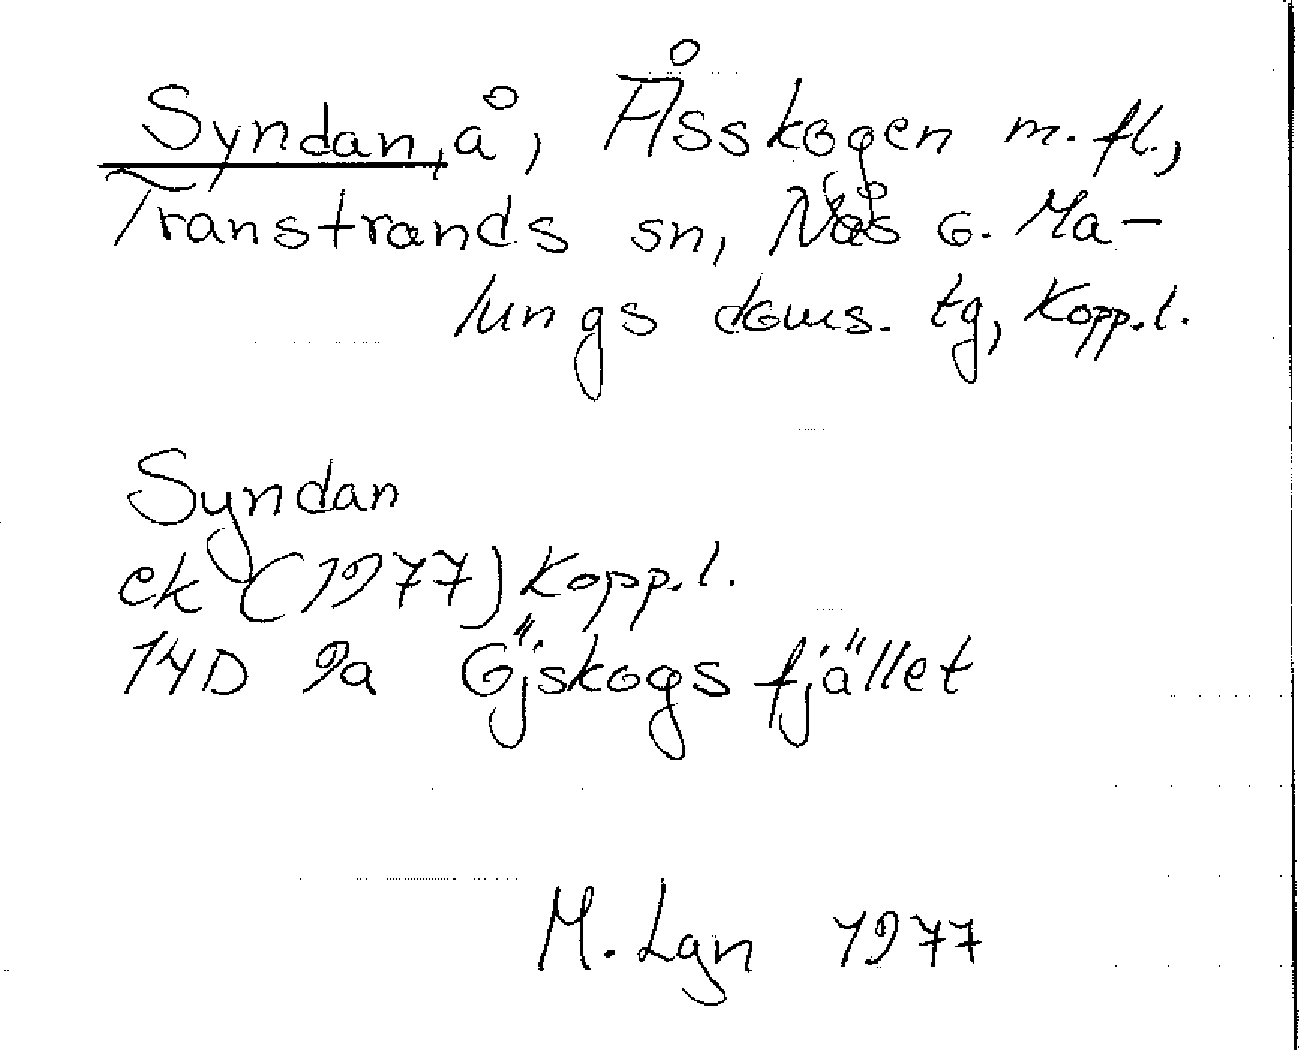 Syndan, å, Åsskogen m. fl.,
Transtrands sn, Nås o. Ma-
lungs doms. tg, Kopp. l.
Syndan
ek (1977) Kopp. l.
14D 9a Öjskogsfjället
M. Lgn 1977